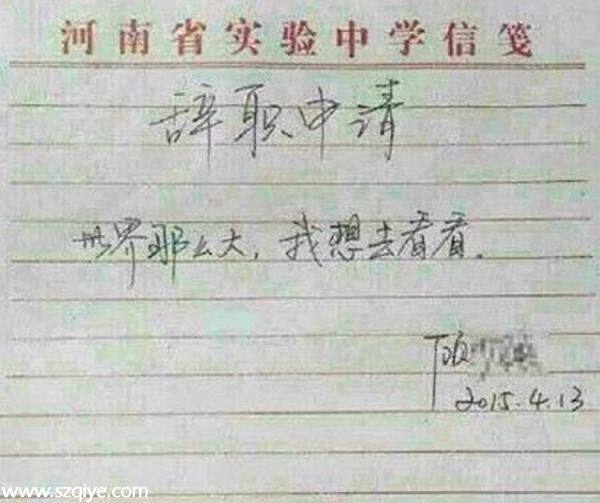 河南省实验中学信笺
辞职申请
世界那么大，我想去看看。
顾
2015.4.13
www.szqiye.com